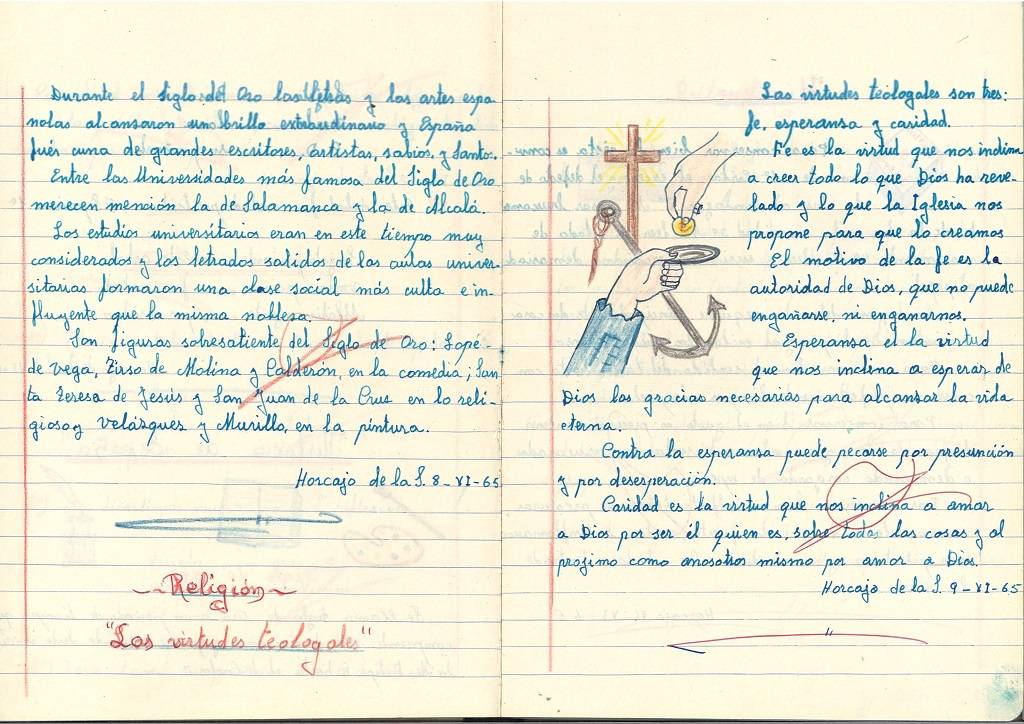 Durante el Siglo del Oro las letras y las artes espa-
nolas alcansaron un brillo extraordinario y España
fués cuna de grandes escritores, artistas, sabios, y Santos.
Entre las Universidades más famosa del Siglo de Oro
merecen mención la de Salamanca y la de Alcalá.
Los estudios universitarios eran en este tiempo muy
considerados y los letrados salidos de las aulas univer-
sitarias formaron una clase social más culta e in-
fluyente que la misma noblesa.
Son figuras sobresatiente del Siglo de Oro: Lope-
de Vega, Tirso de Molina y Calderón, en la comedia; San
ta Teresa de Jesús y San Juan de la Crus en lo reli-
gioso y Velázques y Murillo, en la pintura.
Horcajo de la S. 8-VI-65
Religión
"Las virtudes teologales"
Las virtudes teologales son tres:
fe, esperansa y caridad.
Fe es la virtud que nos inclina
a creer todo lo que Dios ha reve-
lado y lo que la Iglesia nos
propone para que lo creamos
El motivo de la fe es la
autoridad de Dios, que no puede
engañarse, ni enganarnos.
Esperansa el la virtud
que nos inclina a esperar de
Dios las gracias necesarias para alcansar la vida
eterna.
Contra la esperansa puede pecarse por presunción
y por desesperación.
Caridad es la virtud que nos inclina a amar
a Dios por ser él quien es, sobre todas las cosas y al
projimo como anosotros mismo por amor a Dios.
Horcajo de la S. 9-VI-65